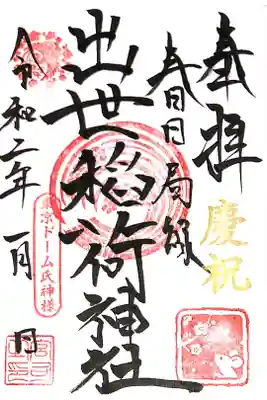 奉拝
慶祝
春日局縁
出世稲荷神社
京ドーム氏神様
令和二年一月 日